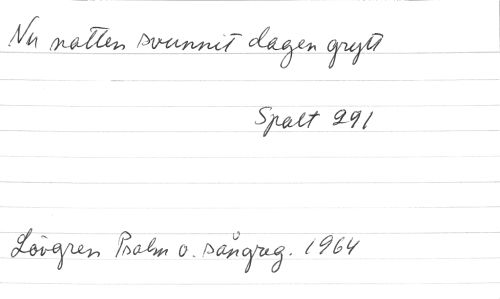 Nu natten svunnit dagen grytt
Spalt 291
Lövgren Psalm o. sångreg. 1964